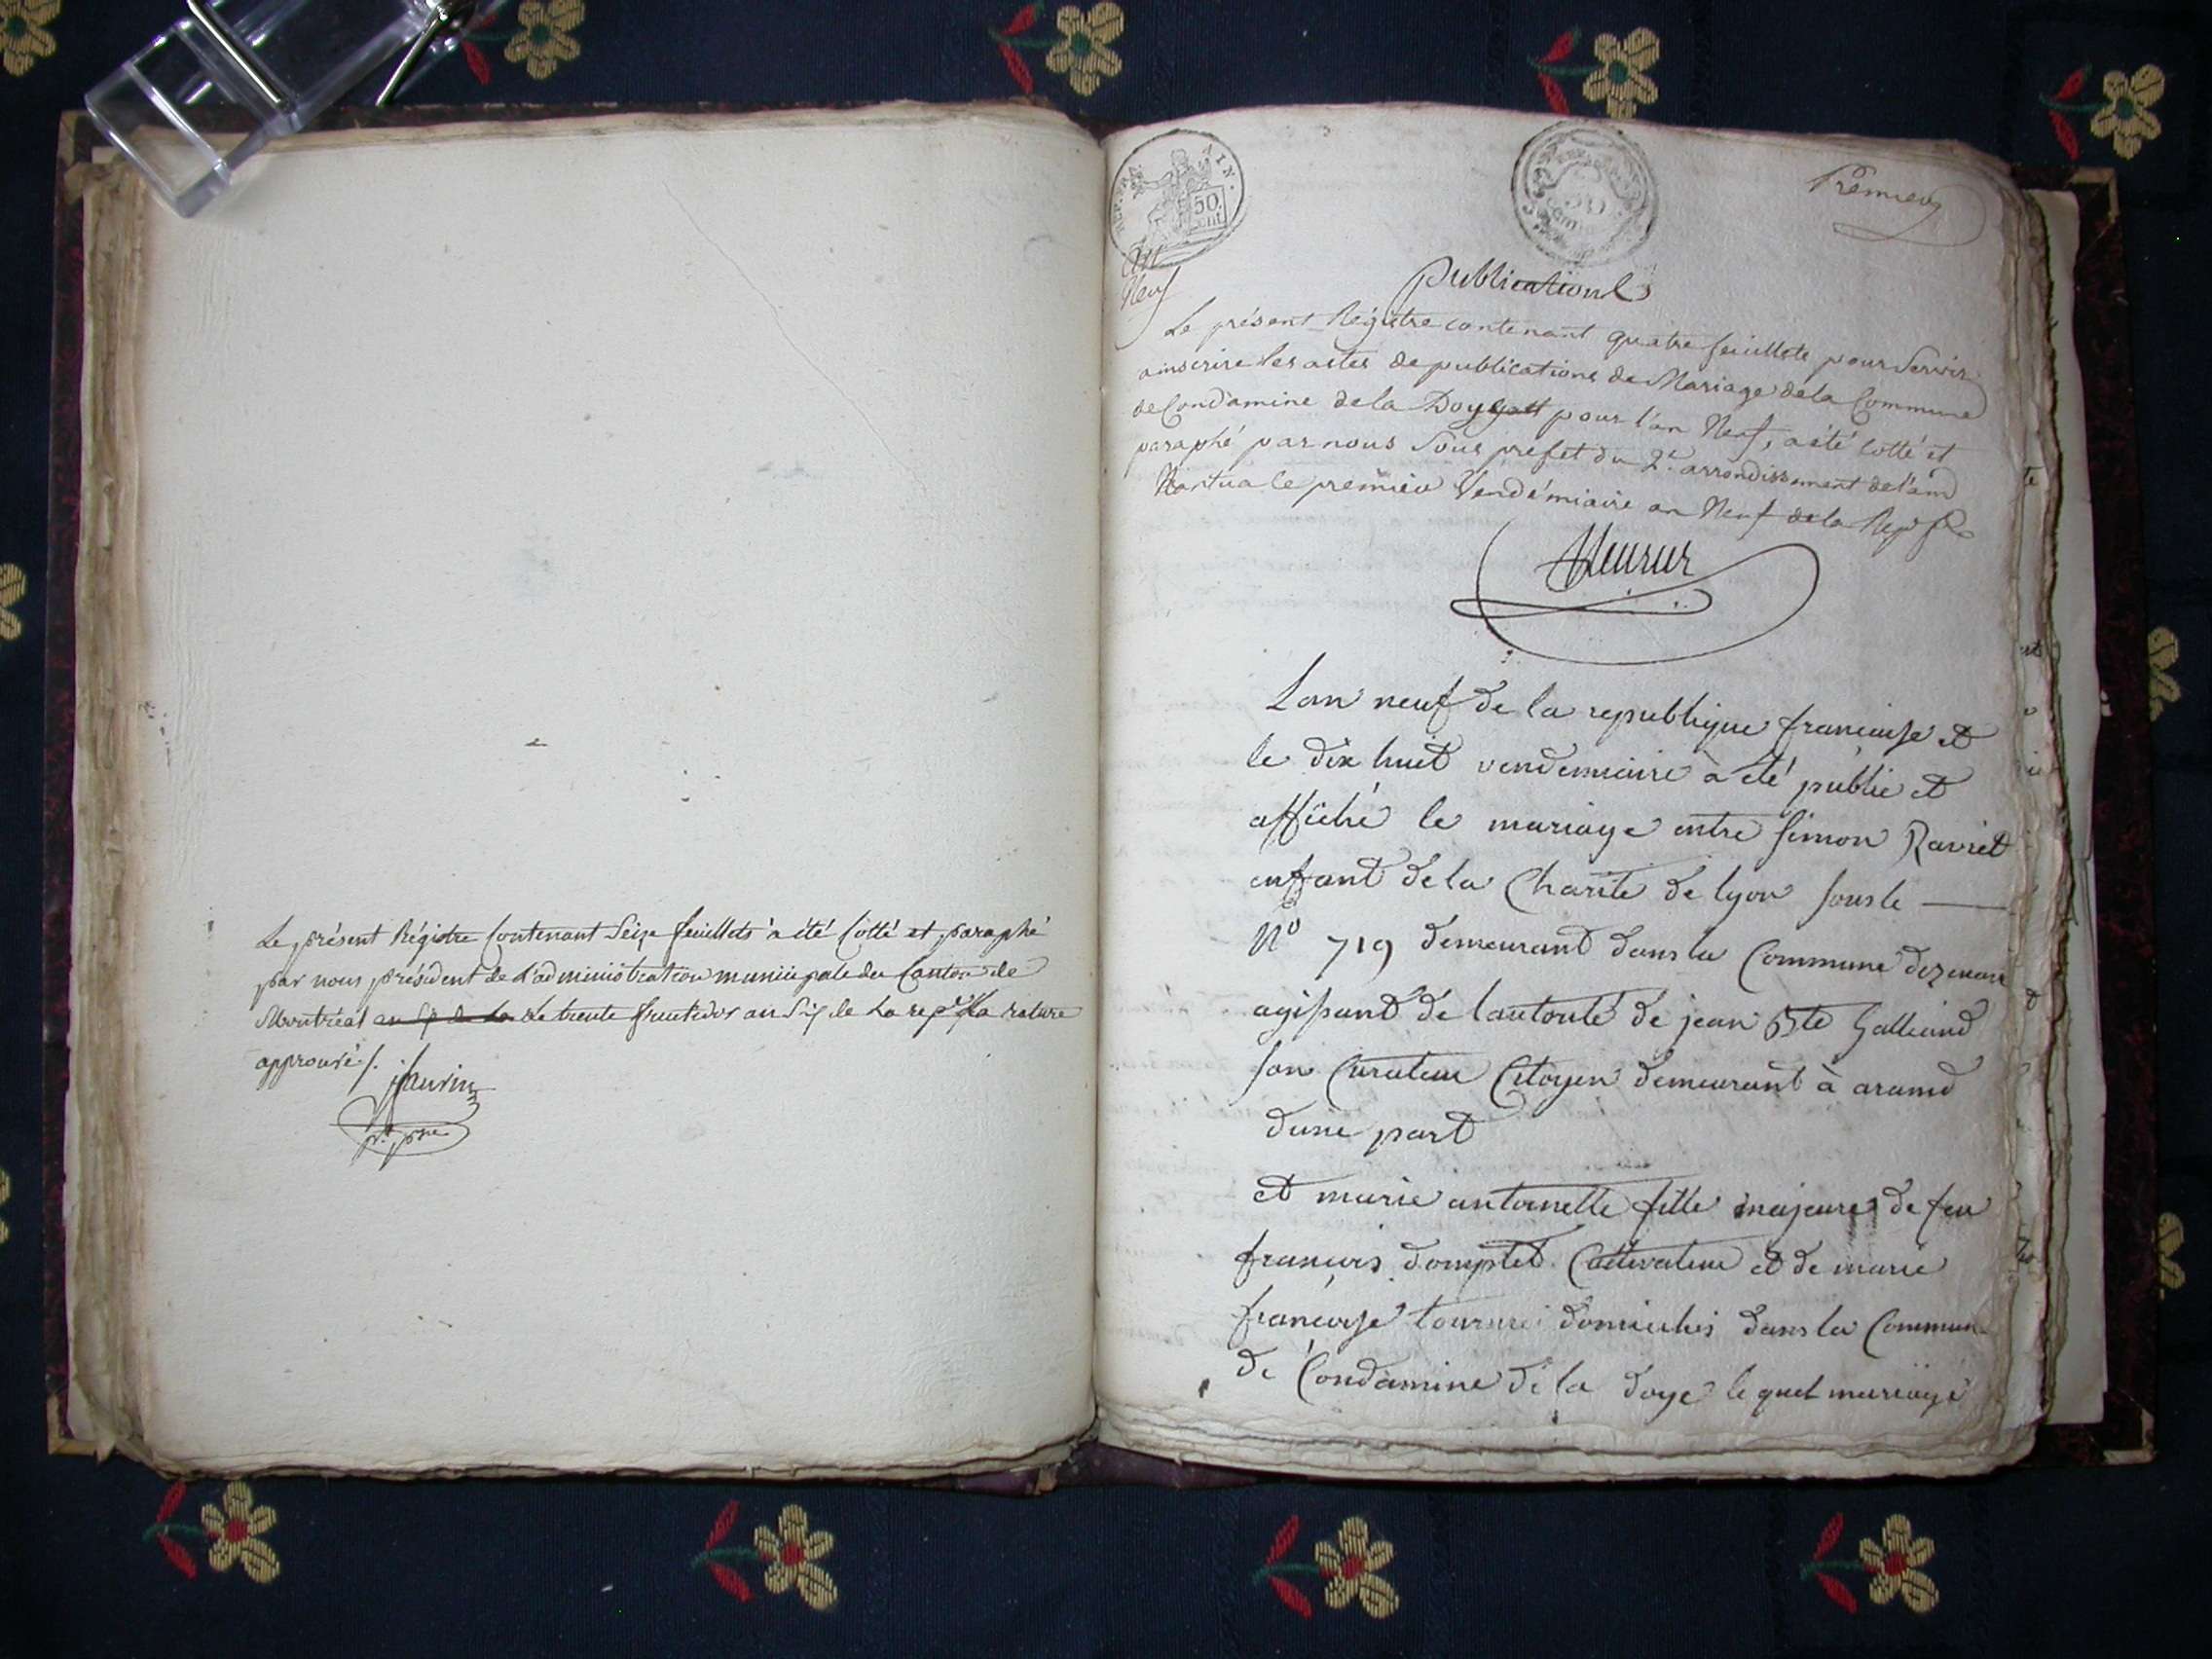 Le présent Régistre Contenant Seize feuillets a été Cotté et paraphé
par nous président de L'administration municipale du Canton de
Montréal Le trente fructidor an Six de La rep. La rature
approuvé.
REP. FRA. AIN.
50 cent
An
Neuf
Premier
publications
Le présent Régistre contenant quatre feuillets pour Servir
a inscrire les actes de publications de Mariage de la Commune
de Condamine de la Doye pour l'an Neuf, a été Cotté et
paraphé par nous Sous préfet du 2e. arrondissement de l'ain
Nantua le premier Vendémiaire an Neuf de la Rep
Lan neuf de la republique francaise et
le dix huit vendemiaire à été publié et
affiché le mariage entre Simon Ravret
enffant de la Charité de lyon sous le
N° 719 demeurant dans la Commune
agissant de lautorité de jean Bte Galliand
son Curateur Citoyen demeurant à
dune part
et marie antoinette fille majeure de feu
francois domptet Cultivateur et de marie
francoise domicilies dans la Commune
de Condamine de la doye le quel mariage